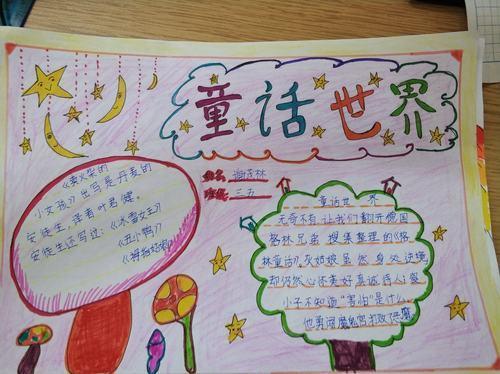 童话世界
姓名：谢茂林
班级：三五
《卖火柴的
小女孩》出写是丹麦的
安徒生，译者叶君健，
安徒生还写过：《冰雪女王》
《丑小鸭》
《拇指姑娘》
童话世 界
无奇不有，让我们翻开德国
格林兄弟 搜集整理的《格
林童话》，灰姑娘虽然身处逆境，
却仍然心还美好真诚待人；傻
小子不知道“害怕”是什么，
他勇闯魔鬼宫打败了恶魔